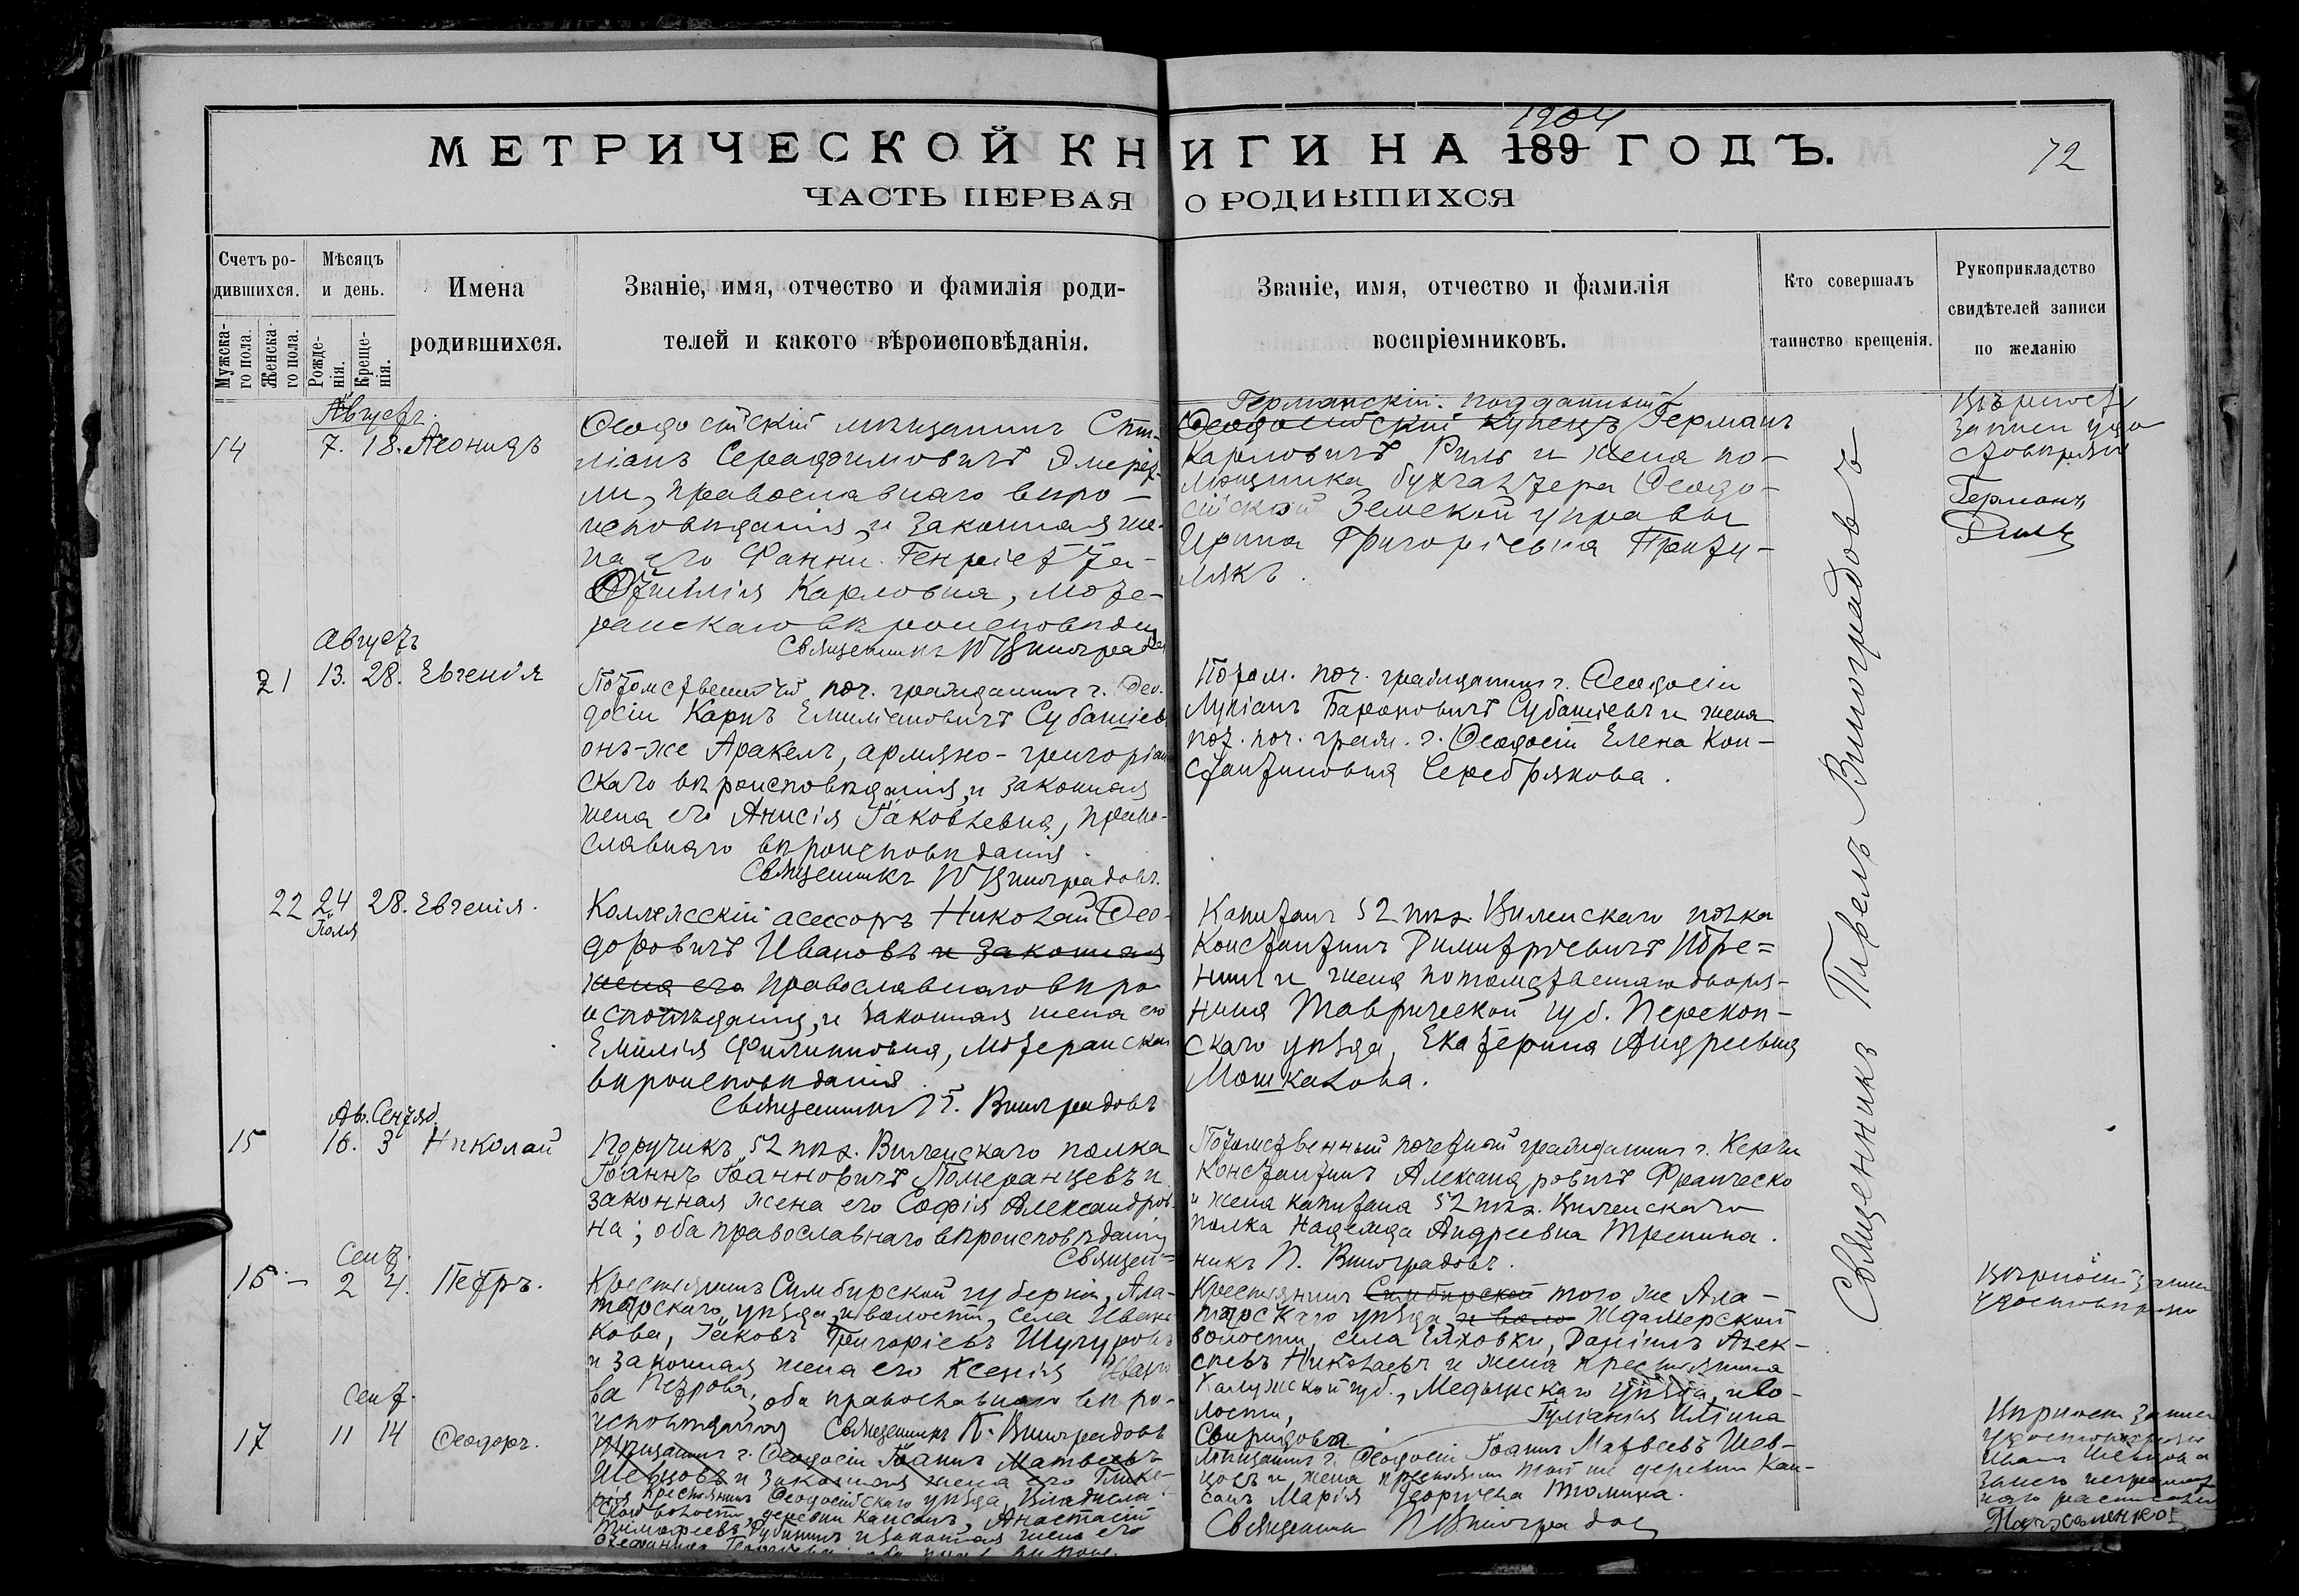 1904
МЕТРИЧЕСКОЙ КНИГИ НА 189 ГОДЪ.
72
ЧАСТЬ ПЕРВАЯ О РОДИВШИХСЯ
Счетъ ро-
дившихся.
Мужска-
го пола.
Женска-
го пола.
Мѣсяцъ
и день.
Рожде-
нія.
Креще-
нія.
Имена
родившихся.
Званіе, имя, отчество и фамилія роди-
телей и какого вѣроисповѣданія.
Званіе, имя, отчество и фамилія
воспріемниковъ.
Кто совершалъ
таинство крещенія.
Рукоприкладство
свидѣтелей записи
по желанію
Августъ.
14 7. 18. Леонидъ
Ѳеодосійскій мѣщанинъ
Серафимовичъ
ли, православнаго вѣро-
исповѣданія, и законная же-
на его Фанни-Генріетта-
Карловна, люте-
ранскаго вѣроисповѣд
Священникъ П Виноградов
Германскій подданный
Ѳеодосійскій купецъ Германъ
Карловичъ Риль и жена по-
мощника бухгалтера Ѳеодо-
сійской Земской управы
Ирина Григоріевна
Вѣрность
записи удо
стовѣряю
Германъ
Риль
Августъ
21 13. 28. Евгенія
Потомственный поч. гражданинъ г. Ѳео-
досіи Карпъ Емиліановичъ Субашіевъ
онъ-же Аракелъ, армяно-григоріан
скаго вѣроисповѣданія, и законная
жена его Анисія Іаковлевна, право-
славнаго вѣроисповѣданія.
Священникъ П Виноградовъ.
Потом. поч. гражданинъ г. Ѳеодосіи
Лукіанъ Субашіевъ и жена
пот. поч. гражд. г. Ѳеодосіи Елена Кон-
стантиновна Серебрякова.
22 24 28. Евгенія.
Іюля
Коллежскій асессоръ Николай Ѳео-
доровичъ Ивановъ и законная
жена его православнаго вѣро
исповѣданія, и законная жена его
Емилія Филипповна, лютеранскаго
вѣроисповѣданія.
Священникъ П. Виноградовъ
Капитанъ 52 пѣх. Виленскаго полка
Константинъ Димитріевичъ
нинъ и жена потомственнаго дворя-
нина Таврической губ. Перекоп-
скаго уѣзда, Екатерина Андреевна
Мошкалова.
Ав. Сентяб.
15 16. 3 Николай
Поручикъ 52 пѣх. Виленскаго полка
Іоаннъ Іоанновичъ Померанцевъ и
законная жена его Софія Александров-
на; оба православнаго вѣроисповѣданія
Священ=
Потомственный почетный гражданинъ г. Керчи
Константинъ Александровичъ Франческо
и жена капитана 52 пѣх. Виленскаго
полка Надежда Андреевна Трепина.
никъ П. Виноградовъ.
Сент.
16 - 2 4. Петръ.
Крестьянинъ Симбирской губерніи, Ала-
тырскаго уѣзда, и волости, села Иванъ
кова, Іаковъ Григоріевъ Шугуровъ
и законная жена его Ксенія Ивано
ва Петрова, оба православнаго вѣро-
исповѣданія Священникъ П. Виноградовъ
Крестьянинъ Симбирской того же Ала-
тырскаго уѣзда, и воло Ждамерской
волости, села Еляховки, Даніилъ Алек-
сѣевъ Николаевъ и жена крестьянина
Калужской губ., Медынскаго уѣзда, и во-
лости, Гуліанія Иліина
Свиридова
Вѣрность записи
удостовѣряю
Сент.
17 11 14 Ѳеодоръ.
Мѣщанинъ г. Ѳеодосіи Іоаннъ Матвеевъ
Шевцовъ и законная жена его Глике-
рія Крестьянинъ Ѳеодосійскаго уѣзда, Владисла
ской волости, деревни Капсанъ, Анастасій
Тимофеевъ и законная жена его
Мѣщанинъ г. Ѳеодосіи Іоаннъ Матвеевъ Шев-
цовъ и жена крестьянина той же деревни Кап-
санъ Марія Георгіева Томина.
Священникъ П Виноградов
Вѣрность записи
удостовѣряю
Иванъ Шевцовъ а
за него неграмот
наго расписался
Священникъ Павелъ Виноградовъ